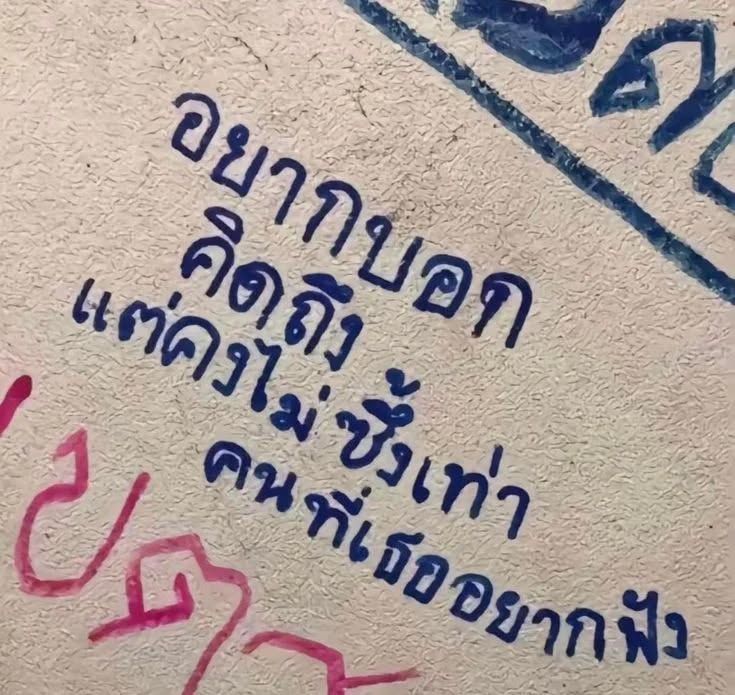 อยากบอก
คิดถึง
แต่คงไม่ซึ้งเท่า
คนที่เธออยากฟัง